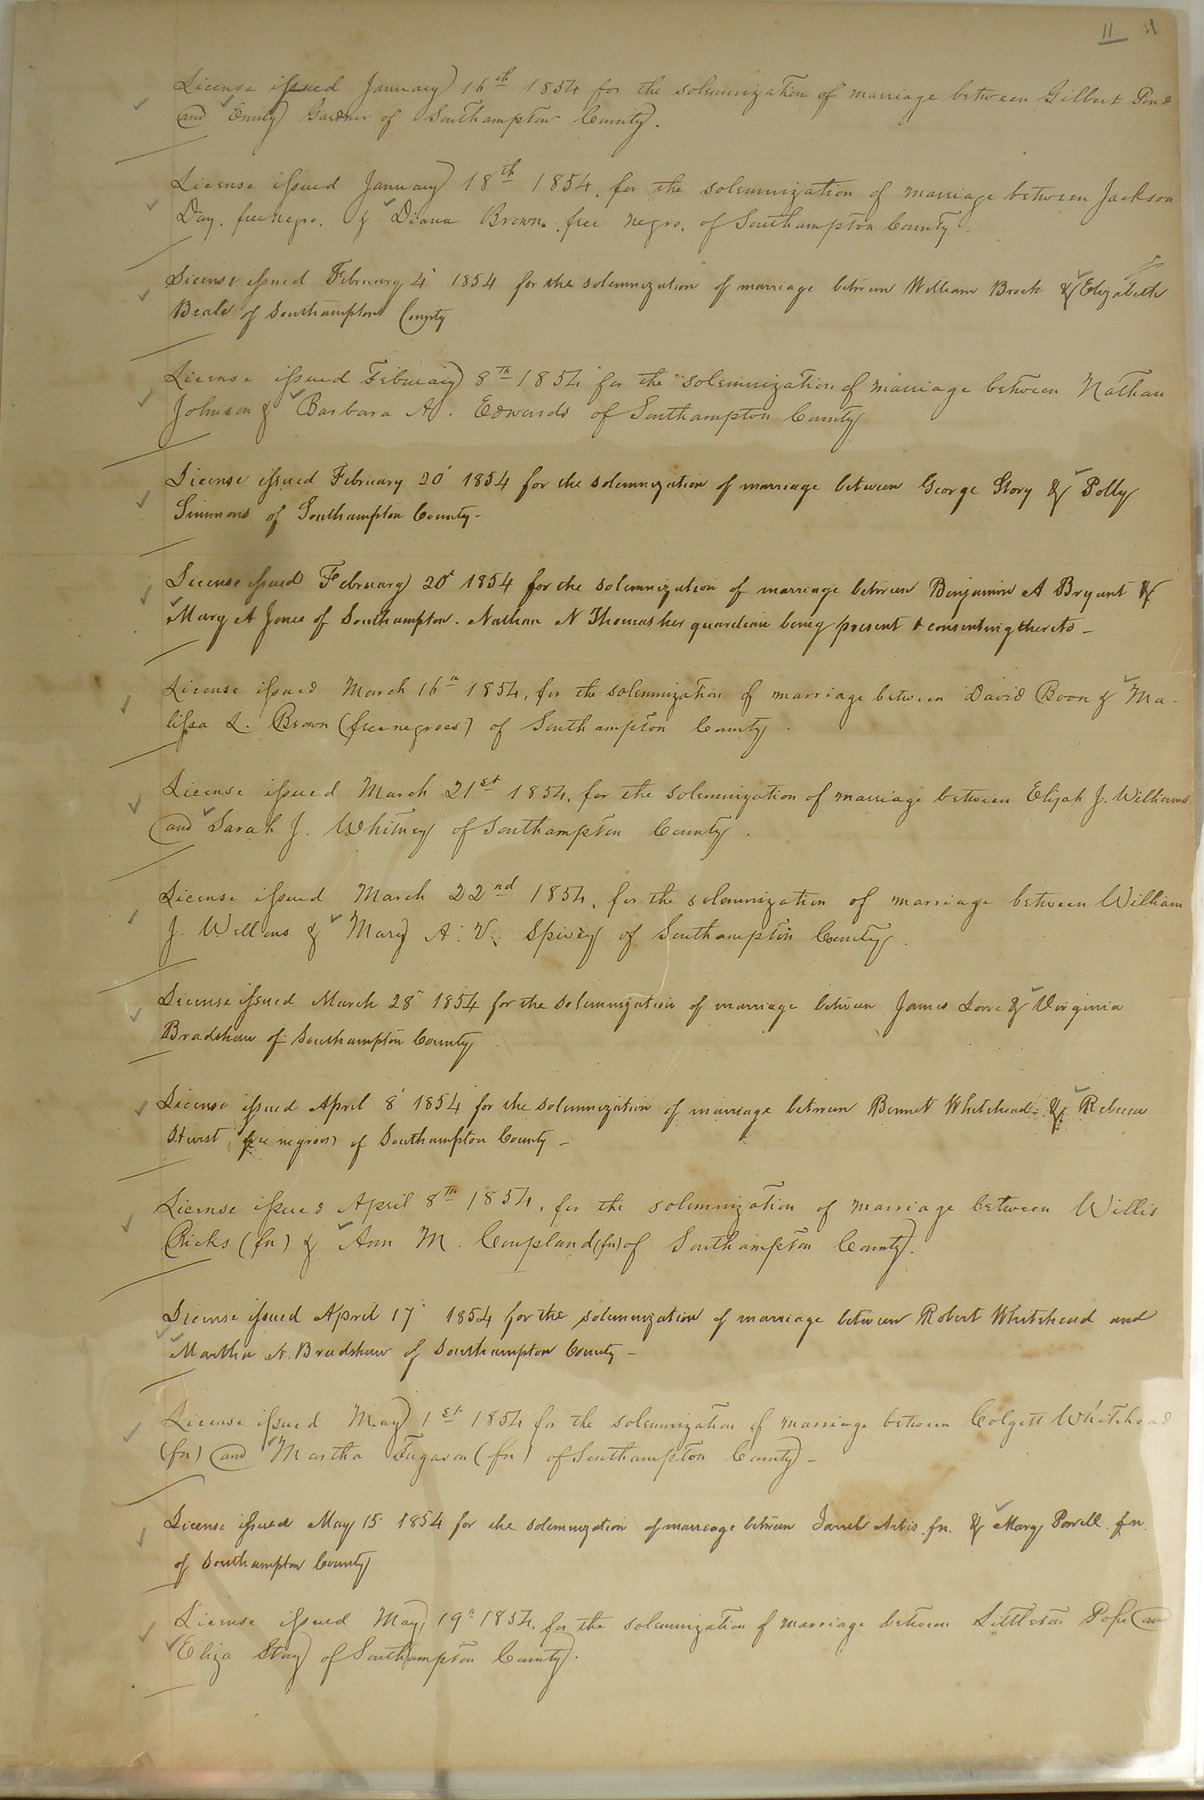 11
License issued January 16th 1854 for the solemnization of marriage between Gilbert Pond
and Emily Gardner of Southampton County.
License issued January 18th 1854, for the solemnization of marriage between Jackson
Day, free negro, & Diana Brown, free negro, of Southampton County.
License issued February 4 1854 for the solemnization of marriage between William Brock & Elizabeth
Beale of Southampton County
License issued February 8th 1854 for the solemnization of marriage between Nathan
Johnson & Barbara A. Edwards of Southampton County
License issued February 20 1854 for the solemnization of marriage between George Story & Polly
Simmons of Southampton County-
License issued February 20 1854 for the solemnization of marriage between Benjamin A Bryant &
Mary A Jones of Southampton. Nathan N Thomas her guardian being present & consenting thereto -
License issued March 16th 1854, for the solemnization of marriage between David Boon & Ma-
lissa L. Brown (free negroes) of Southampton County.
License issued March 21st 1854, for the solemnization of marriage between Elijah J. Williams
and Sarah J. Whitney of Southampton County.
License issued March 22nd 1854, for the solemnization of marriage between William
J. Wellons & Mary A. V. Spivey of Southampton County.
License issued March 28 1854 for the solemnization of marriage between James Love & Virginia
Bradshaw of Southampton County
License issued April 8 1854 for the solemnization of marriage between Bennet Whitehead & Rebecca
Hurst free negroes of Southampton County -
License issued April 8th 1854, for the solemnization of marriage between Willis
Ricks (fn) & Ann M. Coupland (fn) of Southampton County.
License issued April 17 1854 for the solemnization of marriage between Robert Whitehead and
Martha A. Bradshaw of Southampton County -
License issued May 1st 1854 for the solemnization of marriage between Colgett Whitehead
(fn) and Martha Fugason (fn) of Southampton County -
License issued May 15 1854 for the solemnization of marriage between Jarrel Artis fn. & Mary Powell fn.
of Southampton County
License issued May 19th 1854, for the solemnization of marriage between Littleton Pope and
Eliza Stay of Southampton County.